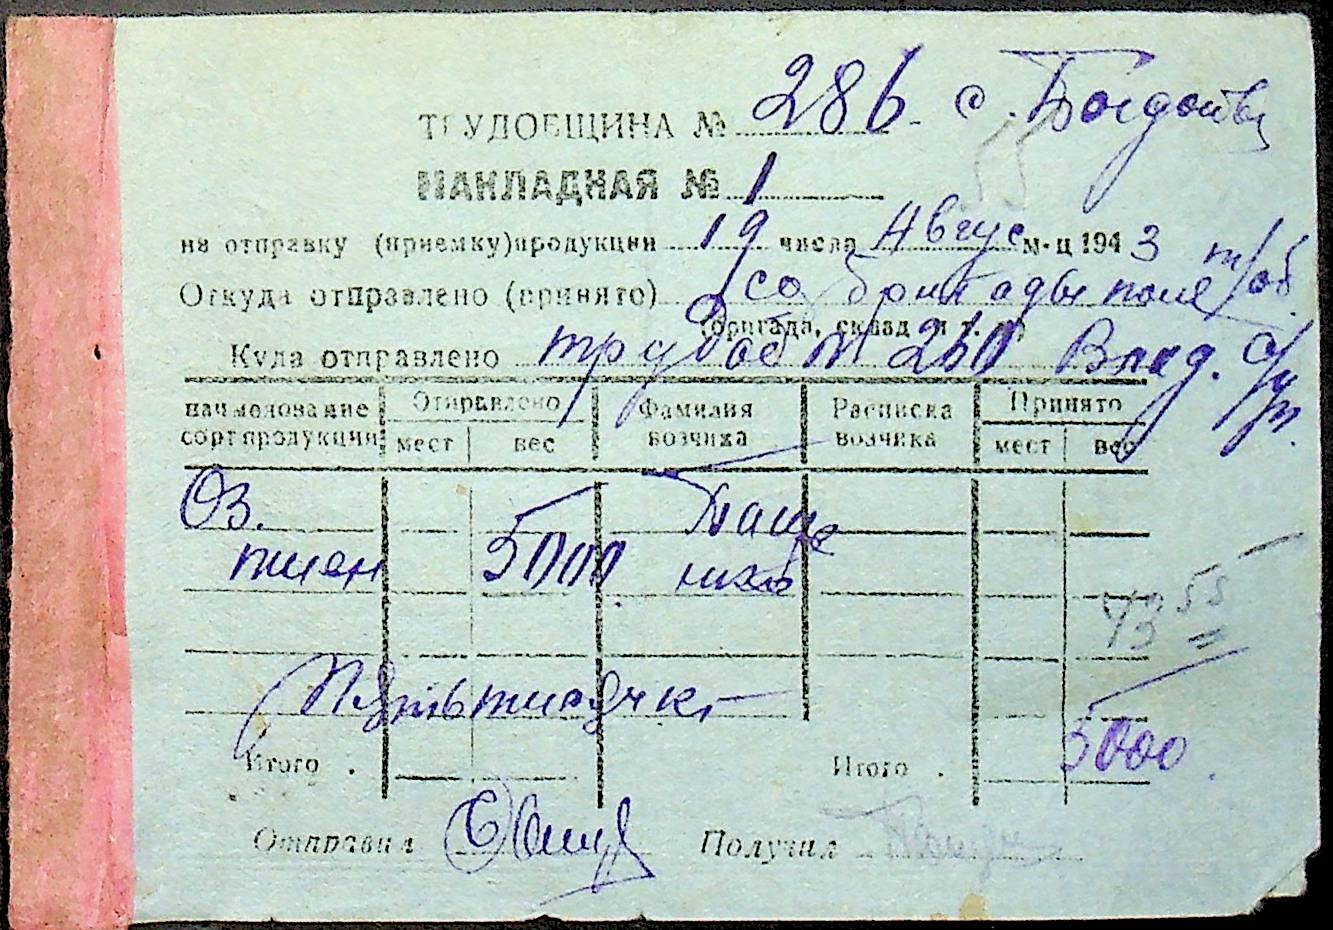 ТРУДОБЩИНА № 286 с.
55
НАКЛАДНАЯ № 1
на отправку (приемку) продукции 19 числа Авгус м-ц 1943
Откуда отправлено (принято) со бригады поле т/об.
(бригада, склад и т. п.)
Куда отправлено трудоб № 260 Влад. с/у
наименование сорт продукции Отправлено Фамилия возчика Расписка возчика Принято
мест вес мест вес
Оз.
пшен 5000
73 55
Пять тисяч кг
5000
Итого . Итого .
Отправил Получил